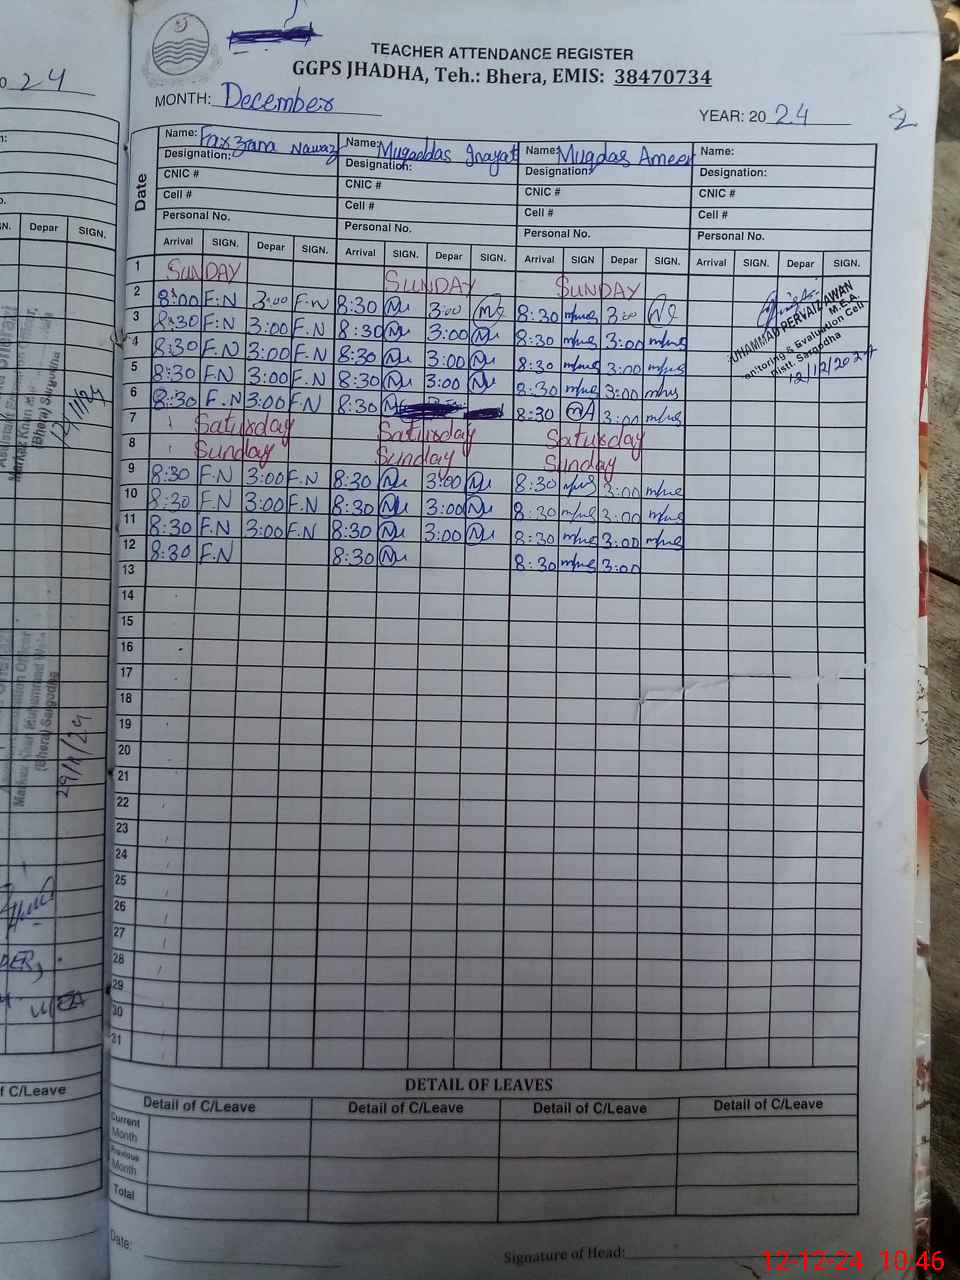 TEACHER ATTENDANCE REGISTER
GGPS JHADHA, Teh.: Bhera, EMIS: 38470734
MONTH: December YEAR: 2024
Name: Farzana Nawaz Name: Muqaddas Inayat Name: Muqdas Ameer Name:
Designation: Designation: Designation: Designation:
CNIC # CNIC # CNIC # CNIC #
Cell # Cell # Cell # Cell #
Personal No. Personal No. Personal No. Personal No.
Date Arrival SIGN. Depar SIGN. Arrival SIGN. Depar SIGN. Arrival SIGN Depar SIGN. Arrival SIGN. Depar SIGN.
1 SUNDAY SUNDAY SUNDAY
2 8:00 F.N 3:00 F.N 8:30 3:00 8:30 3:00
3 8:30 F.N 3:00 F.N 8:30 3:00 8:30 3:00
4 8:30 F.N 3:00 F.N 8:30 3:00 8:30 3:00
5 8:30 F.N 3:00 F.N 8:30 3:00 8:30 3:00
6 8:30 F.N 3:00 F.N 8:30 8:30 3:00
7 Saturday Saturday Saturday
8 Sunday Sunday Sunday
9 8:30 F.N 3:00 F.N 8:30 3:00 8:30 3:00
10 8:30 F.N 3:00 F.N 8:30 3:00 8:30 3:00
11 8:30 F.N 3:00 F.N 8:30 3:00 8:30 3:00
12 8:30 F.N 8:30 8:30 3:00
13
14
15
16
17
18
19
20
21
22
23
24
25
26
27
28
29
30
31
MUHAMMAD PERVAIZ AWAN
M.E.A
Monitoring & Evaluation Cell
Distt. Sargodha
12/12/2024
DETAIL OF LEAVES
Detail of C/Leave Detail of C/Leave Detail of C/Leave Detail of C/Leave
Current Month
Previous Month
Total
Date: Signature of Head:
24
Depar SIGN.
(Bhera) Sargodha
12/11/24
(Bhera) Sargodha
29/11/24
MEA
of C/Leave
12-12-24 10:46